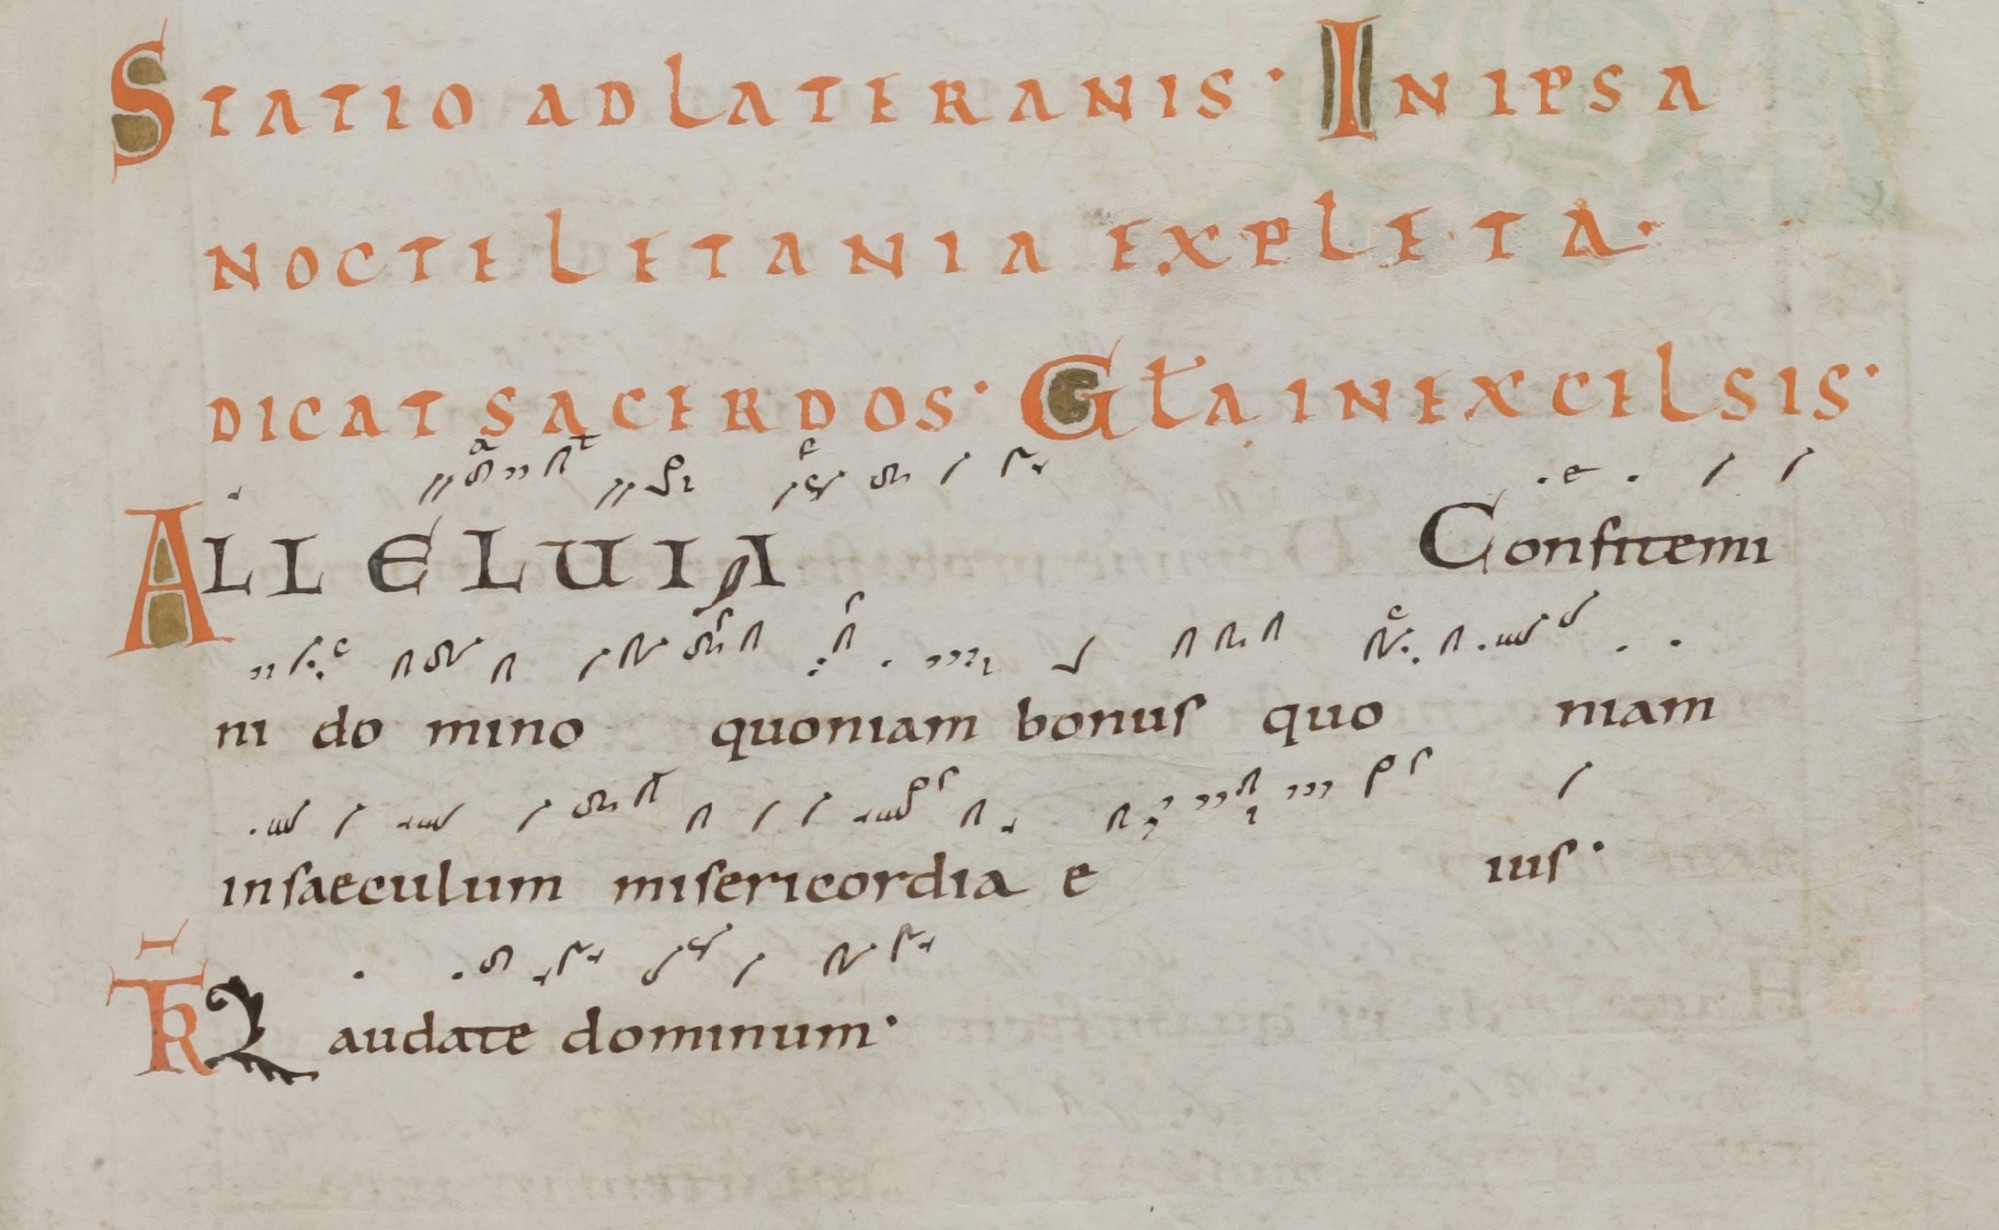 STATIO AD LATERANIS· IN IPSA
NOCTE LETANIA EXPLETA·
DICAT SACERDOS· GLA IN EXCELSIS·
ALLELUIA Confitemi
ni domino quoniam bonus quo niam
insaeculum misericordia e ius·
TR Laudate dominum·